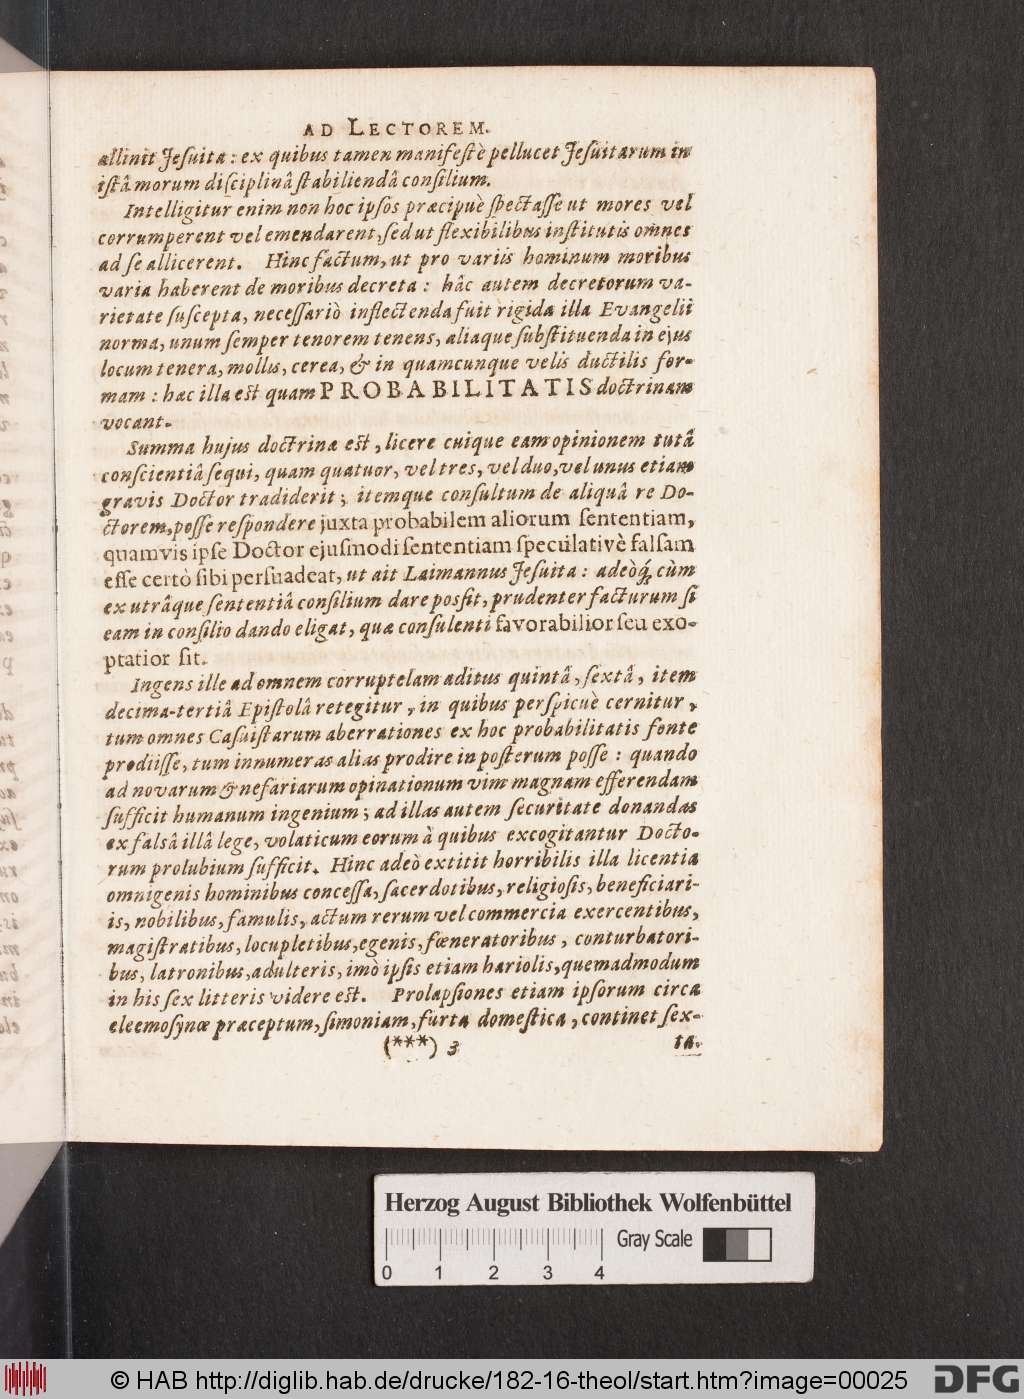 AD LECTOREM.
allinit Jeſuita: ex quibus tamen manifeſtè pellucet Jeſuitarum in
iſtâ morum diſciplinâ ſtabiliendâ conſilium.
Intelligitur enim non hoc ipſos præcipuè ſpectaſſe ut mores vel
corrumperent vel emendarent, ſed ut flexibilibus inſtitutis omnes
ad ſe allicerent. Hinc factum, ut pro variis hominum moribus
varia haberent de moribus decreta: hâc autem decretorum va-
rietate ſuſcepta, neceſſariò inflectenda fuit rigida illa Evangelii
norma, unum ſemper tenorem tenens, aliaque ſubſtituenda in ejus
locum tenera, mollis, cerea, & in quamcunque velis ductilis for-
mam: hæc illa est quam PROBABILITATIS doctrinam
vocant.
Summa hujus doctrinæ est, licere cuique eam opinionem tutâ
conſcientiâ ſequi, quam quatuor, vel tres, vel duo, vel unus etiam
gravis Doctor tradiderit; itemque conſultum de aliquâ re Do-
ctorem, poſſe reſpondere juxta probabilem aliorum ſententiam,
quamvis ipſe Doctor ejuſmodi ſententiam ſpeculativè falſam
eſſe certò ſibi perſuadeat, ut ait Laimannus Jeſuita: adeòq́; cùm
ex utrâque ſententiâ conſilium dare poſſit, prudenter facturum ſi
eam in conſilio dando eligat, quæ conſulenti favorabilior ſeu exo-
ptatior ſit.
Ingens ille ad omnem corruptelam aditus quintâ, ſextâ, item
decima-tertiâ Epiſtolâ retegitur, in quibus perſpicuè cernitur,
tum omnes Caſuiſtarum aberrationes ex hoc probabilitatis fonte
prodiiſſe, tum innumeras alias prodire in poſterum poſſe: quando
ad novarum & nefariarum opinationum vim magnam efferendam
ſufficit humanum ingenium; ad illas autem ſecuritate donandas
ex falsâ illâ lege, volaticum eorum à quibus excogitantur Docto-
rum prolubium ſufficit. Hinc adeò extitit horribilis illa licentia
omnigenis hominibus conceſſa, ſacerdotibus, religioſis, beneficiari-
is, nobilibus, famulis, actum rerum vel commercia exercentibus,
magiſtratibus, locupletibus, egenis, fœneratoribus, conturbatori-
bus, latronibus, adulteris, imò ipſis etiam hariolis, quemadmodum
in his ſex litteris videre eſt. Prolapſiones etiam ipſorum circa
eleemoſynæ præceptum, ſimoniam, furta domeſtica, continet ſex-
(***) 3
ta.
Herzog August Bibliothek Wolfenbüttel
Gray Scale
0 1 2 3 4
© HAB http://diglib.hab.de/drucke/182-16-theol/start.htm?image=00025
DFG